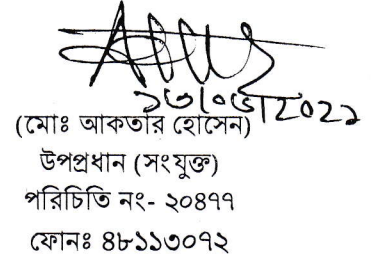 ১৩/০৬/২০২১
(মোঃ আকতার হোসেন)
উপপ্রধান (সংযুক্ত)
পরিচিতি নং- ২০৪৭৭
ফোনঃ ৪৮১১৩০৭২